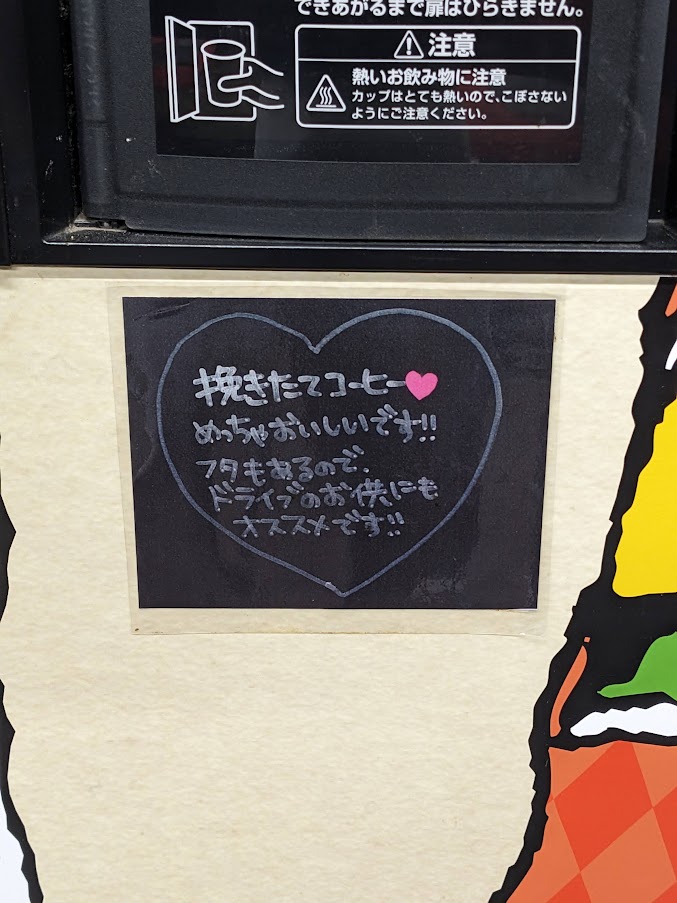 できあがるまで扉はひらきません。
注意
熱いお飲み物に注意
カップはとても熱いので、こぼさない
ようにご注意ください。
挽きたてコーヒー♥
めっちゃおいしいです!!
フタもあるので、
ドライブのお供にも
オススメです!!